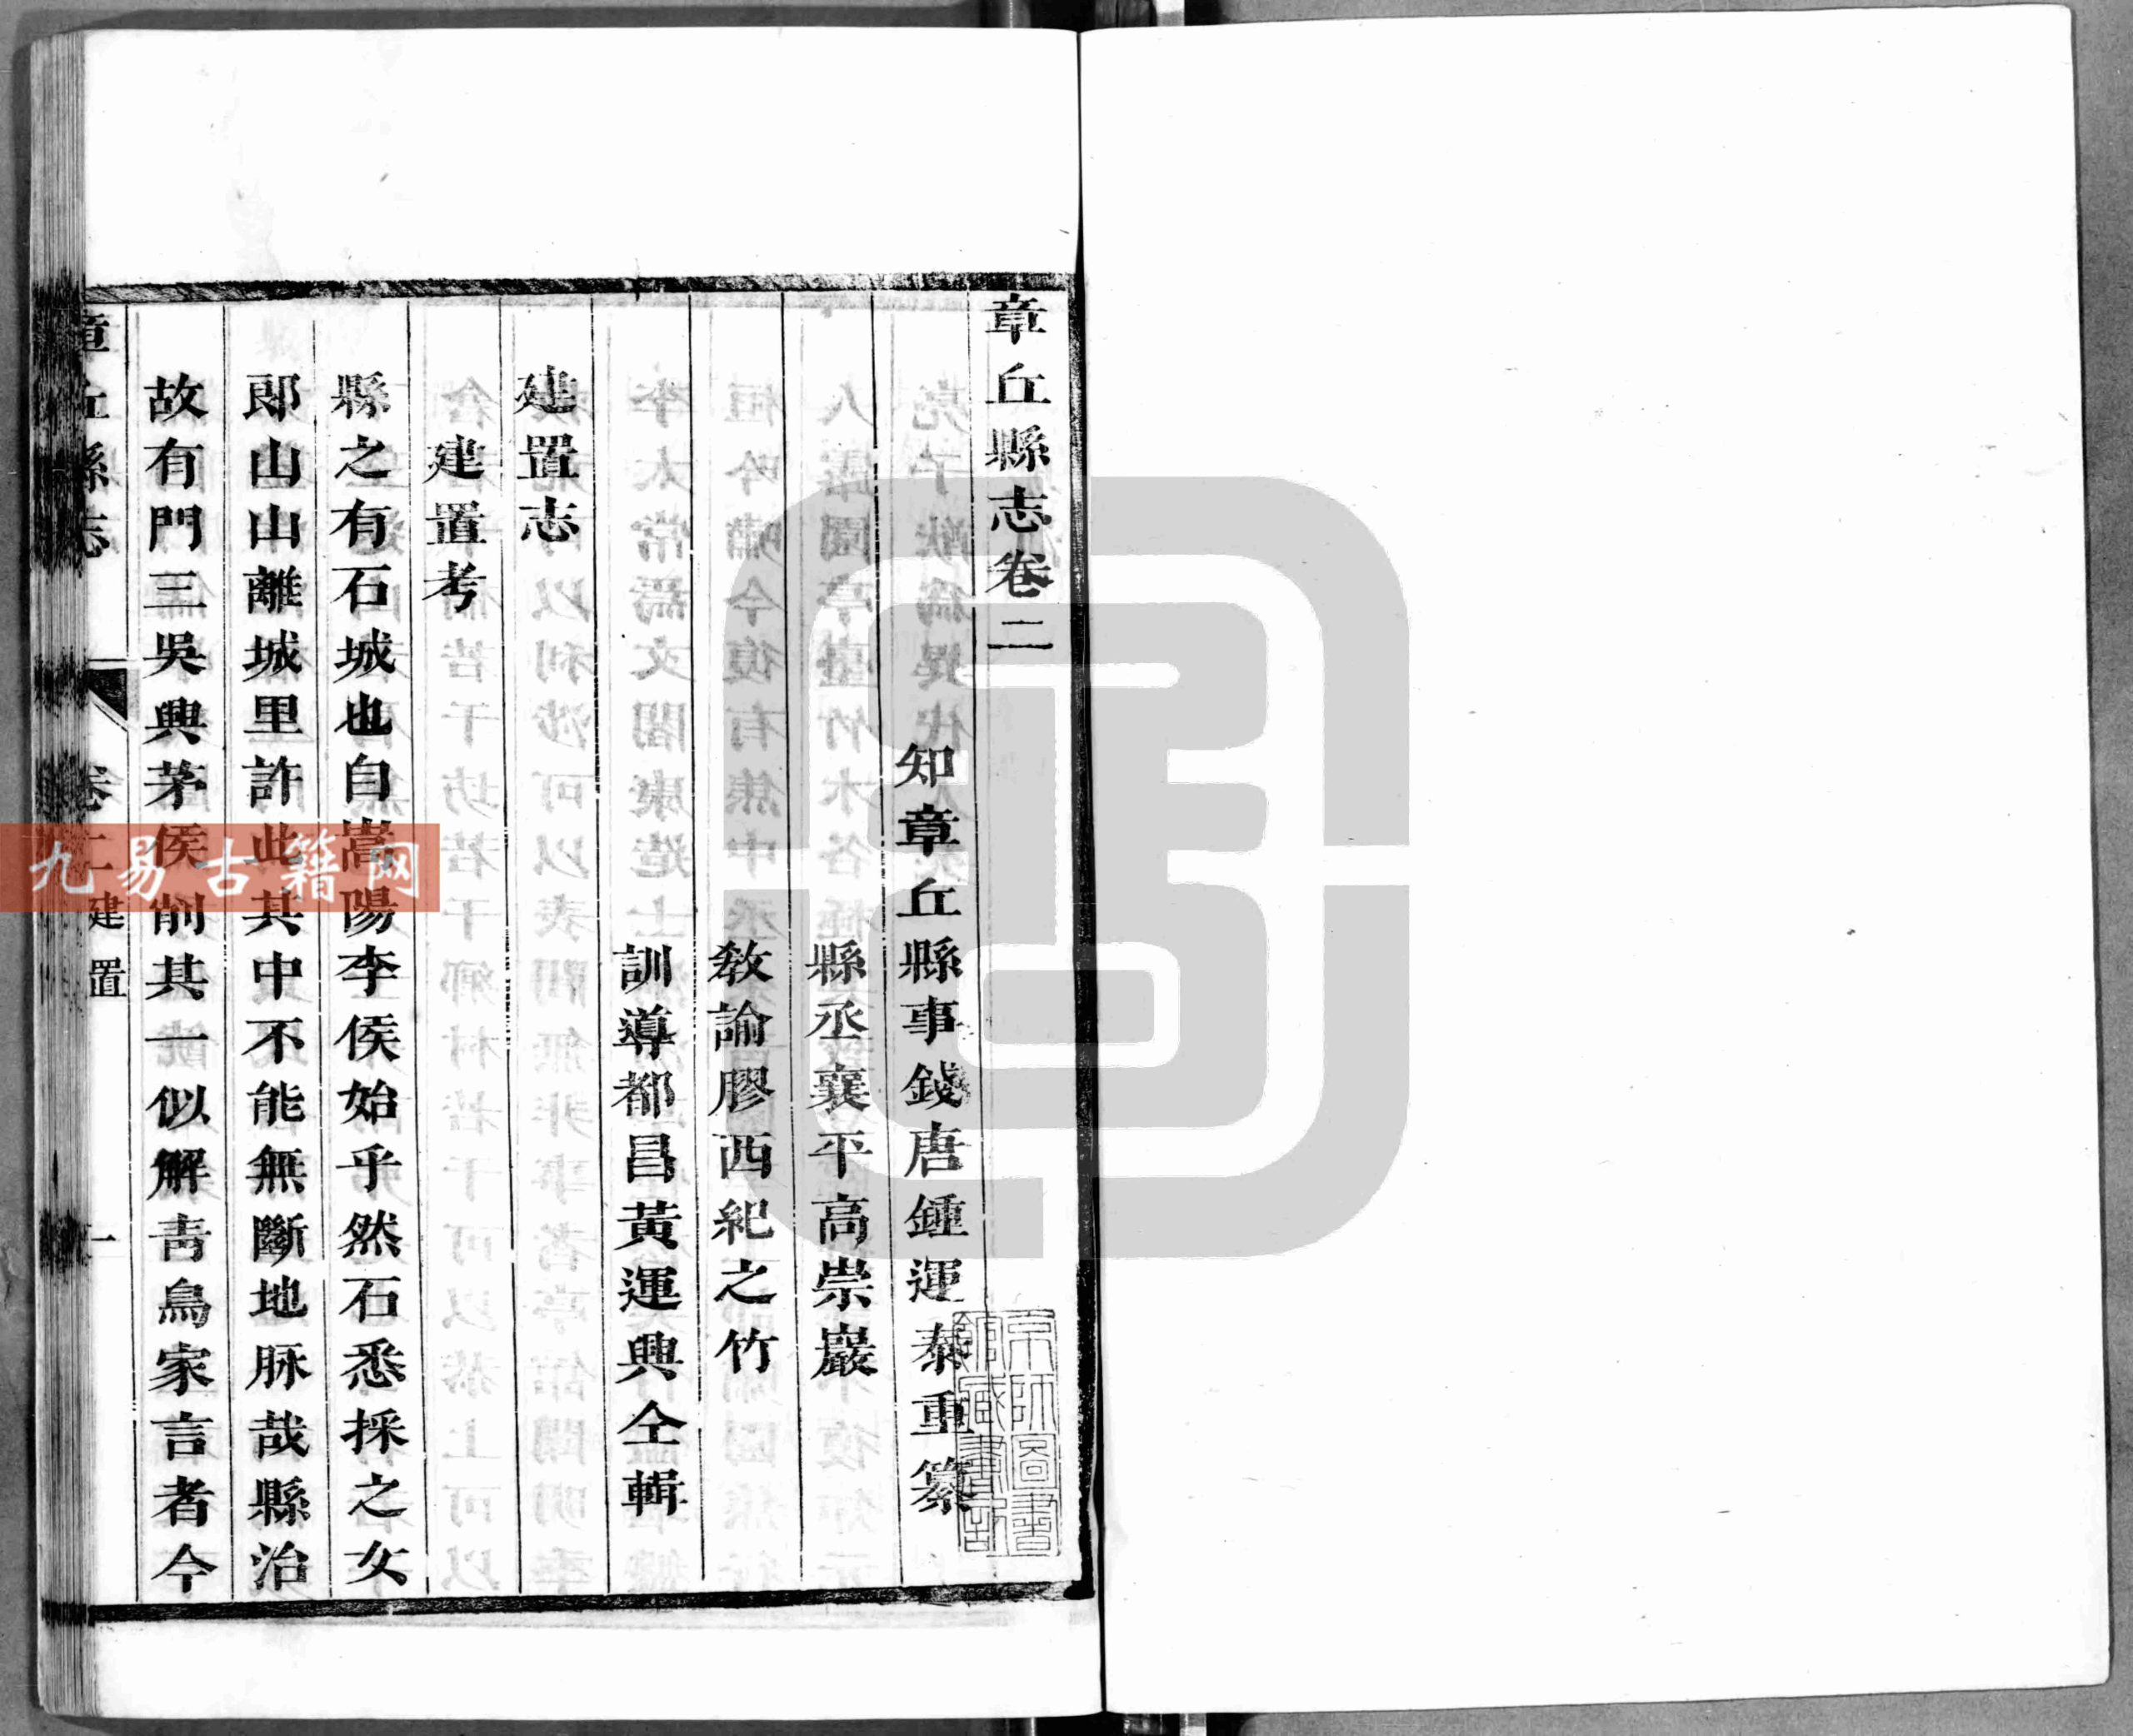 章丘縣志卷二
知章丘縣事錢唐鍾運泰重纂
縣丞襄平高崇巖
教諭膠西紀之竹
訓導都昌黃運興仝輯
建置志
建置考
縣之有石城也自嵩陽李侯始乎然石悉採之女
郎山山離城里許此其中不能無斷地脉哉縣治
故有門三吳興茅侯削其一似解青烏家言者今
章丘縣志
卷二
建置
一
九易古籍网
京師圖書
館藏書記